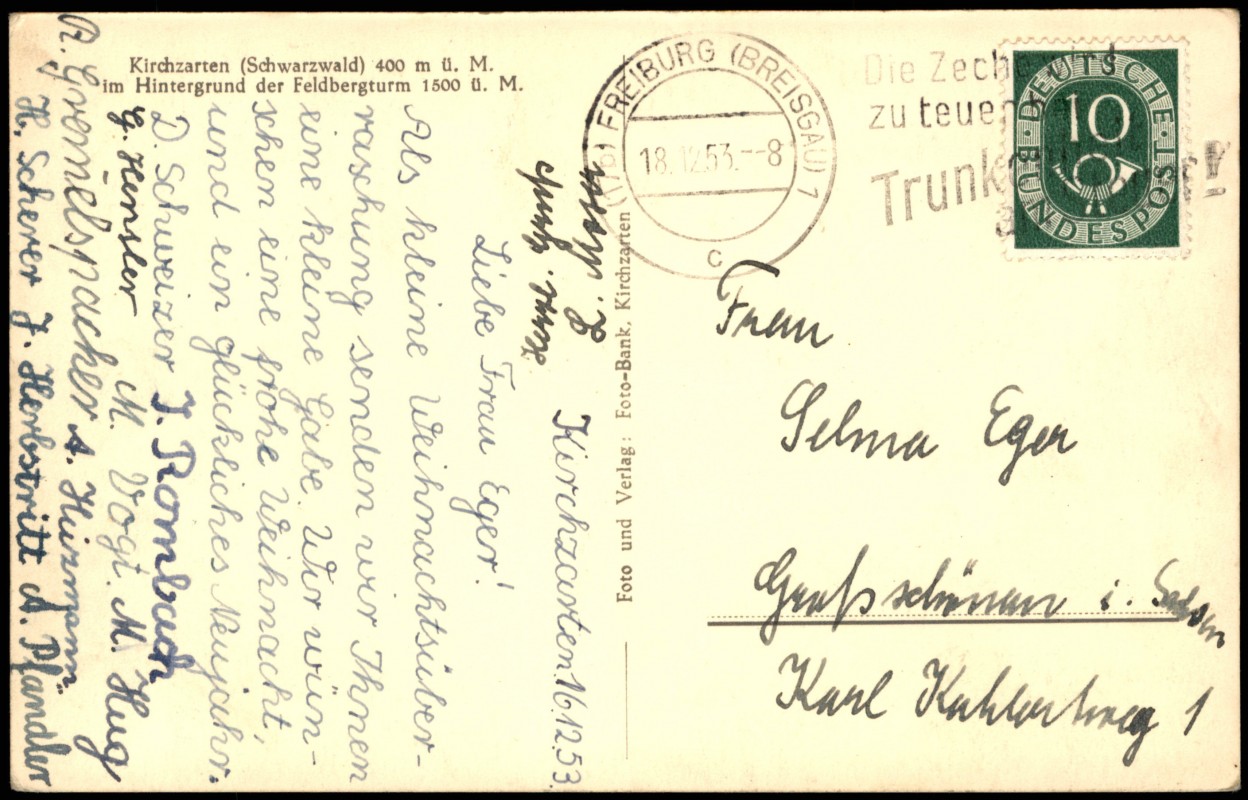 Kirchzarten (Schwarzwald) 400 m ü. M.
im Hintergrund der Feldbergturm 1500 ü. M.
Kirchzarten. 16.12.53.
Liebe Frau Eger!
Als kleine Weihnachtsüber-
raschung senden wir Ihnen
eine kleine Gabe. Wir wün-
schen eine frohe Weihnacht,
und ein glückliches Neujahr.
D. Schweizer J. Rombach
G. Hensler M. Vogt. M. Hug
R. Gremelspacher A. Heizmann.
H. Scherer J. Herbstritt A. Pfändler
Foto und Verlag: Foto-Bank, Kirchzarten
(17b) FREIBURG (BREISGAU) 1
18.12.53.--8
c
Die Zeche
zu teuer
Trunk
!
DEUTSCHE
10
BUNDESPOST
Frau
Selma Eger
Großschönau i. Sachsen
Karl Kahlertweg 1